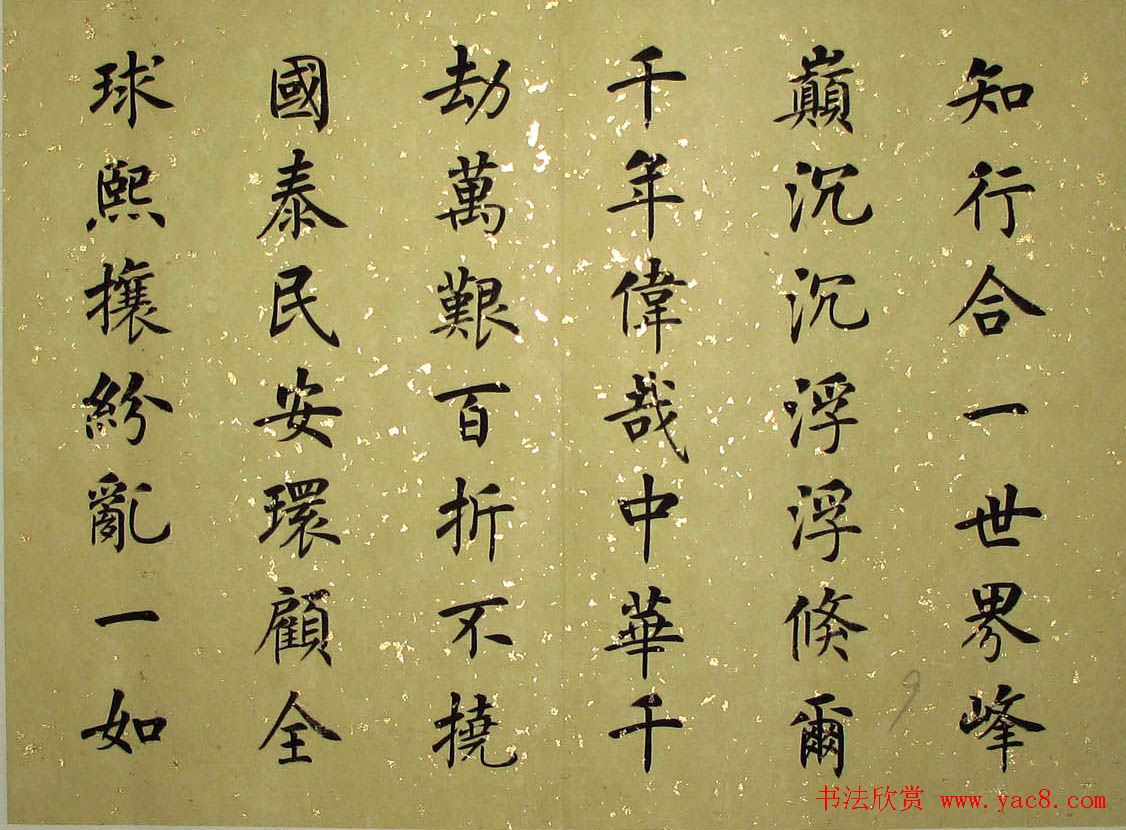 知行合一世界峰
巔沉沉浮浮倏爾
千年偉哉中華千
劫萬艱百折不撓
國泰民安環顧全
球熙攘紛亂一如
9
书法欣赏 www.yac8.com